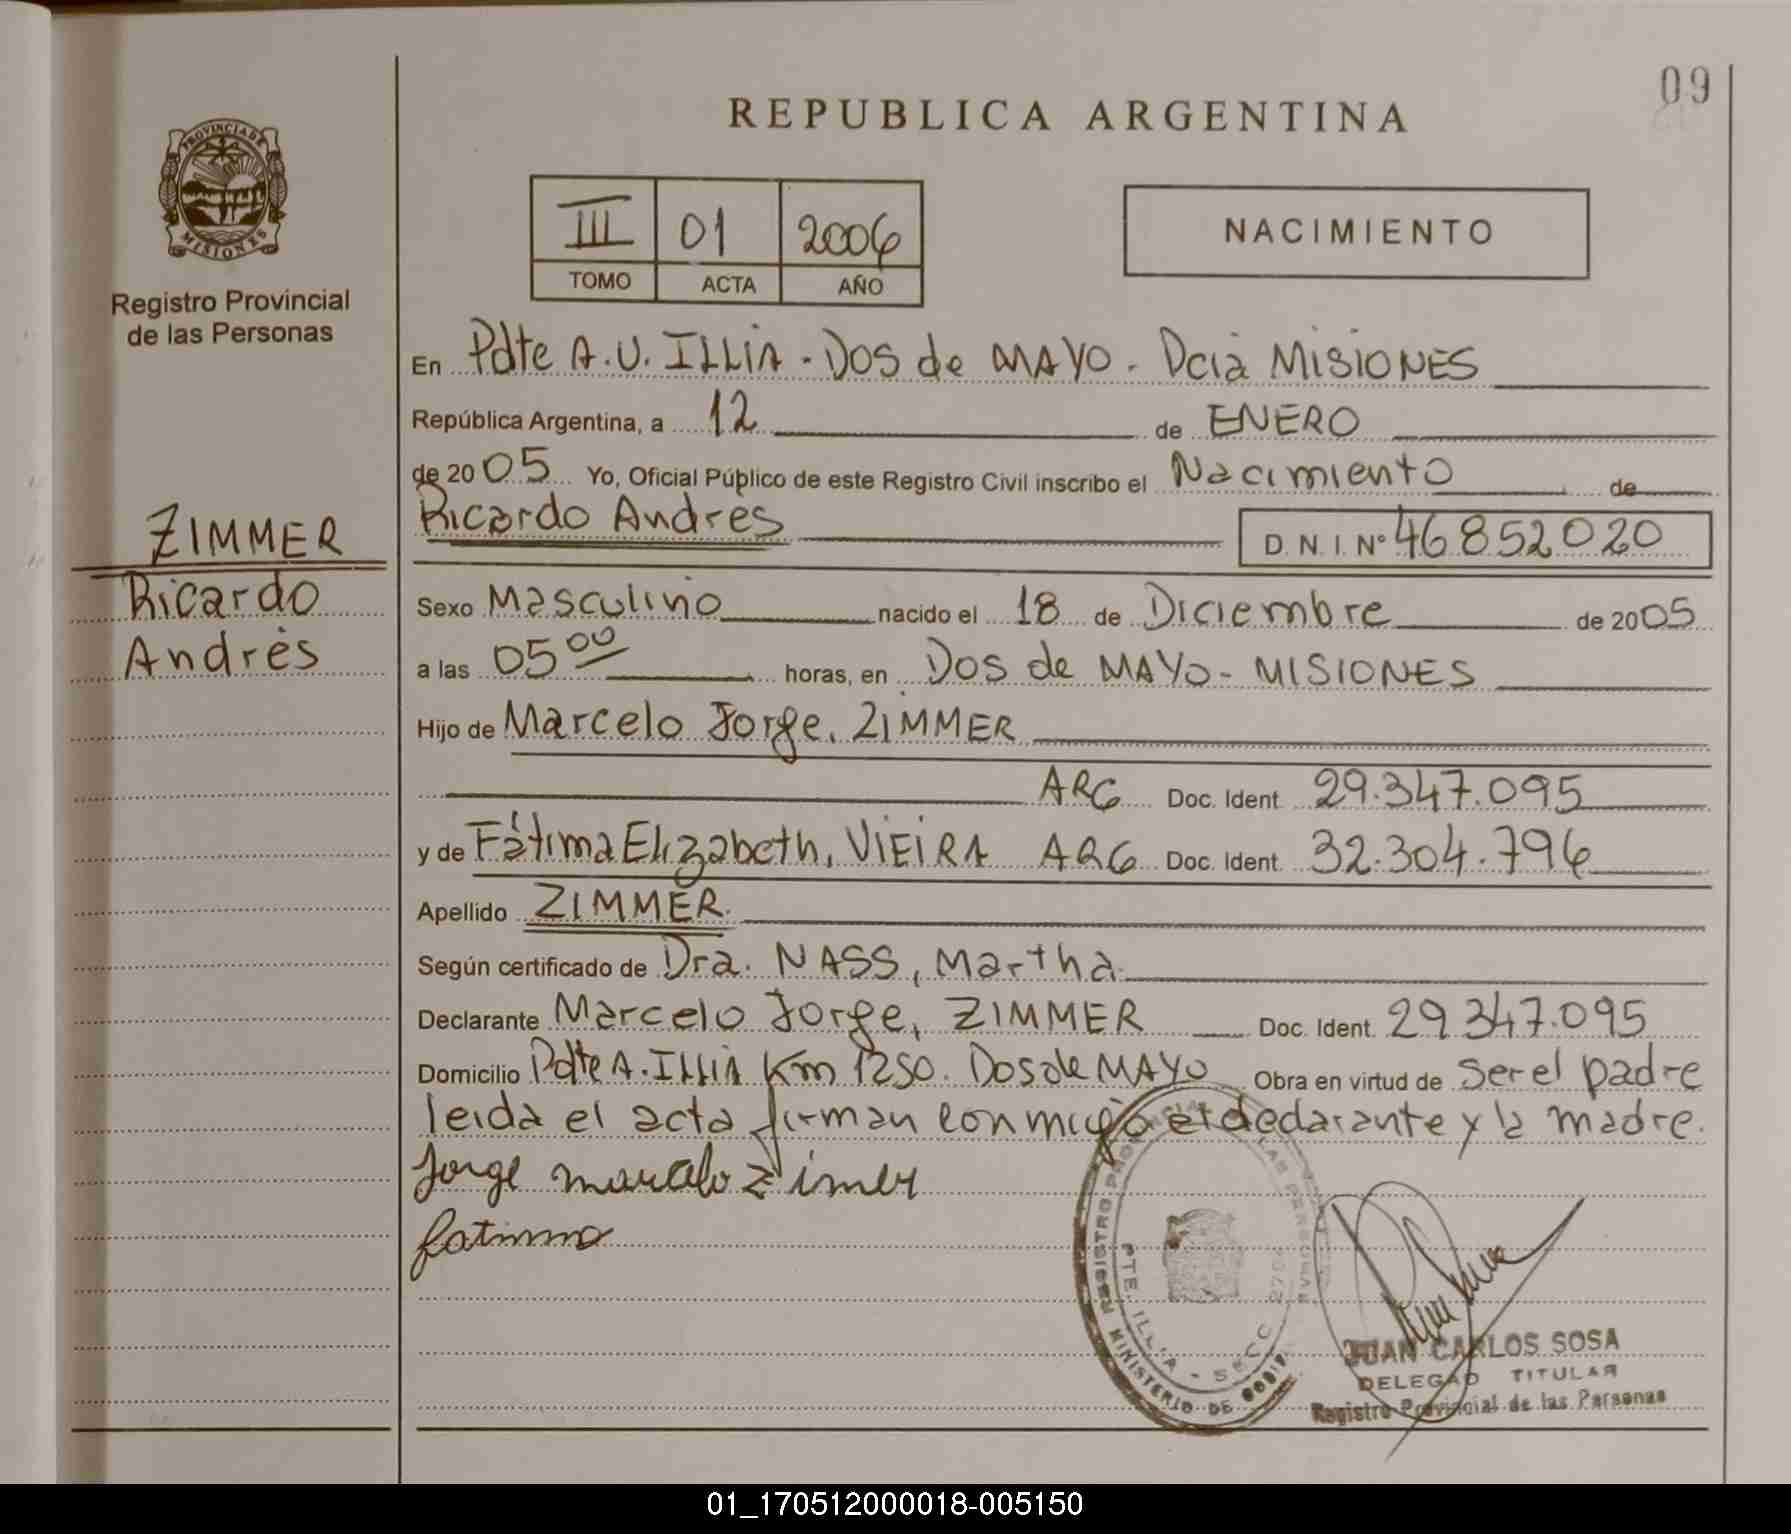 09
REPUBLICA ARGENTINA
PROVINCIA DE
MISIONES
Registro Provincial
de las Personas
III 01 2006
TOMO ACTA AÑO
NACIMIENTO
En Pdte A.U. ILLIA - DOS de MAYO - Pcia MISIONES
República Argentina, a 12 de ENERO
de 2005 Yo, Oficial Público de este Registro Civil inscribo el Nacimiento de
Ricardo Andres D.N.I. Nº 46852020
ZIMMER
Ricardo
Andrés
Sexo Masculino nacido el 18 de Diciembre de 2005
a las 05 00 horas, en DOS de MAYO - MISIONES
Hijo de Marcelo Jorge, ZIMMER
ARG Doc. Ident. 29.347.095
y de Fátima Elizabeth, VIEIRA ARG Doc. Ident. 32.304.796
Apellido ZIMMER.
Según certificado de Dra. NASS, Martha.
Declarante Marcelo Jorge, ZIMMER Doc. Ident. 29.347.095
Domicilio Pdte A. ILLIA Km 1250. Dos de MAYO Obra en virtud de ser el padre
leida el acta firman conmigo el declarante y la madre.
Jorge marcelo Zimer
fatima
REGISTRO PROVINCIAL DE LAS PERSONAS
PTE. ILLIA - SECC.
MINISTERIO DE GOBIE
JUAN CARLOS SOSA
DELEGAD TITULAR
Registro Provincial de las Personas
01_170512000018-005150